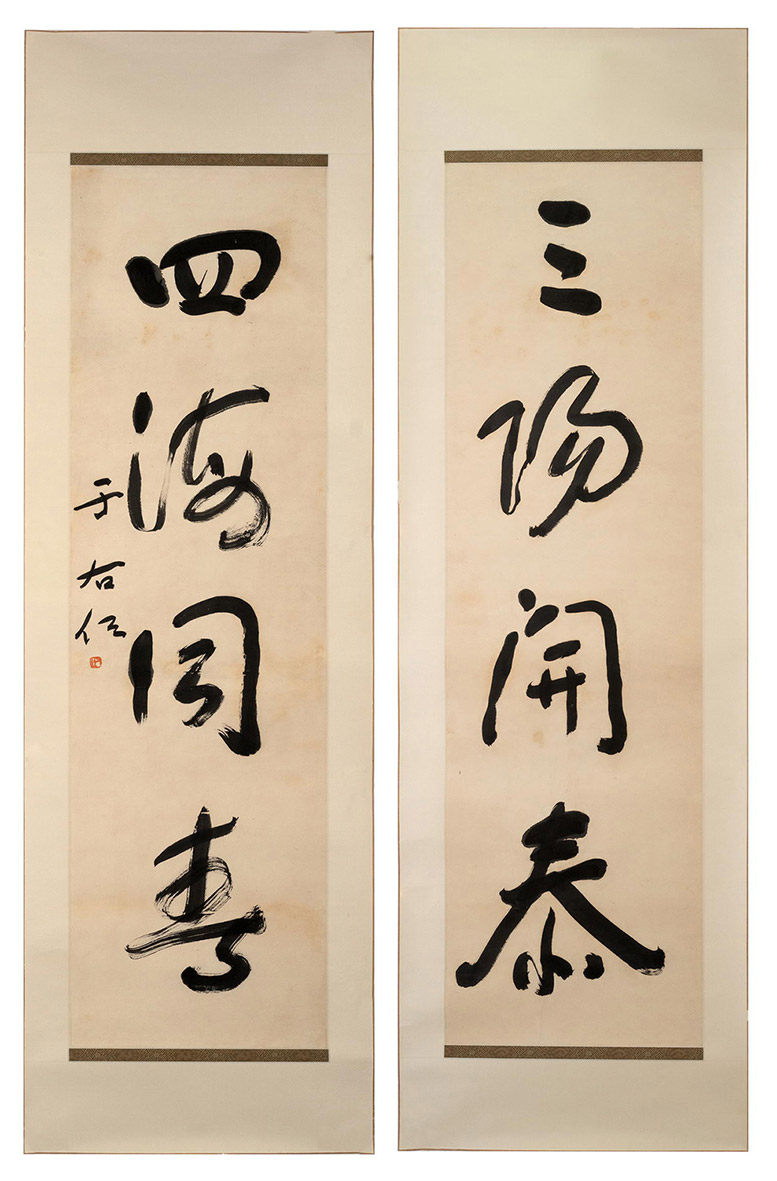 三陽開泰
四海同春
于右任